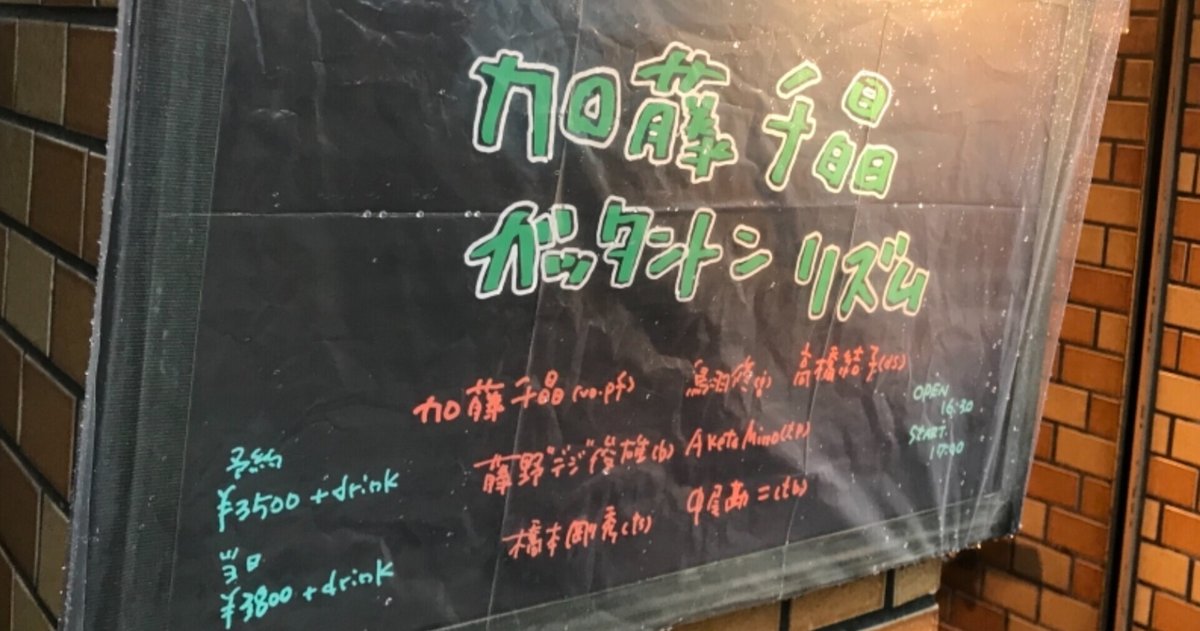 加藤千晶
ガッタントンリズム
加藤千晶(vo.pf) 鳥羽修(g) 高橋結子(ds)
藤野"デジ"俊雄(b) Aketa Mino(tp)
橋本剛秀(ts) 中尾勘二(tb)
OPEN
16:30
START
17:00
予約
¥3500+drink
当日
¥3800+drink